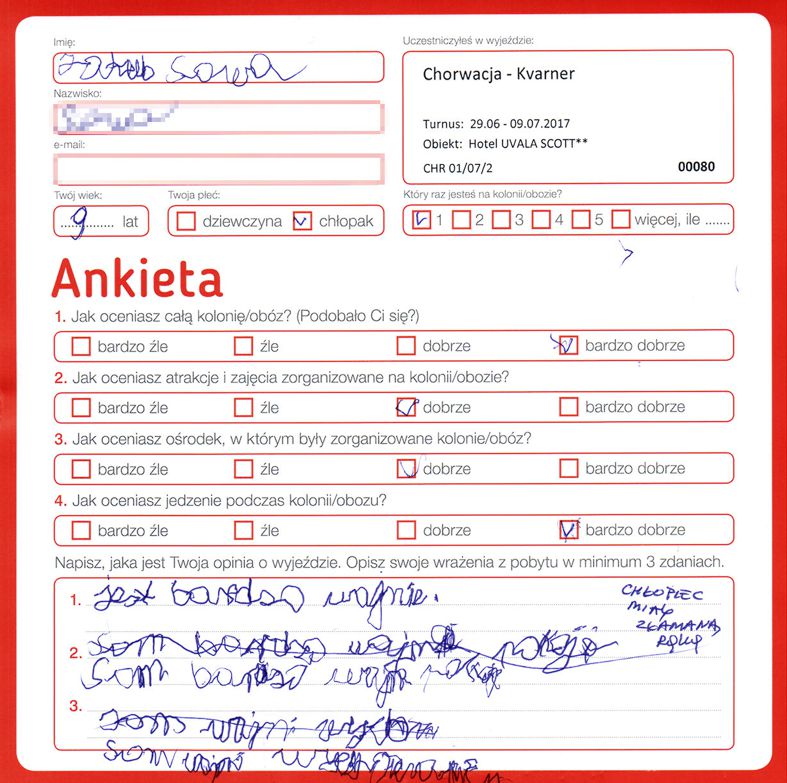 Imię:
Uczestniczyłeś w wyjeździe:
Jakub Sowa
Chorwacja - Kvarner
Nazwisko:
Turnus: 29.06 - 09.07.2017
e-mail:
Obiekt: Hotel UVALA SCOTT**
CHR 01/07/2
00080
Twój wiek:
Twoja płeć:
Który raz jesteś na kolonii/obozie?
9 lat
dziewczyna
chłopak
1 2 3 4 5 więcej, ile .......
Ankieta
1. Jak oceniasz całą kolonię/obóz? (Podobało Ci się?)
bardzo źle źle dobrze bardzo dobrze
2. Jak oceniasz atrakcje i zajęcia zorganizowane na kolonii/obozie?
bardzo źle źle dobrze bardzo dobrze
3. Jak oceniasz ośrodek, w którym były zorganizowane kolonie/obóz?
bardzo źle źle dobrze bardzo dobrze
4. Jak oceniasz jedzenie podczas kolonii/obozu?
bardzo źle źle dobrze bardzo dobrze
Napisz, jaka jest Twoja opinia o wyjeździe. Opisz swoje wrażenia z pobytu w minimum 3 zdaniach.
1. jest bardzo wajnie.
CHŁOPIEC
MIAŁ
ZŁAMANĄ
RĘKĘ
2. som bardzo wajne pokoje
som bardzo wajne pokoje
3. som wajni
som wajni